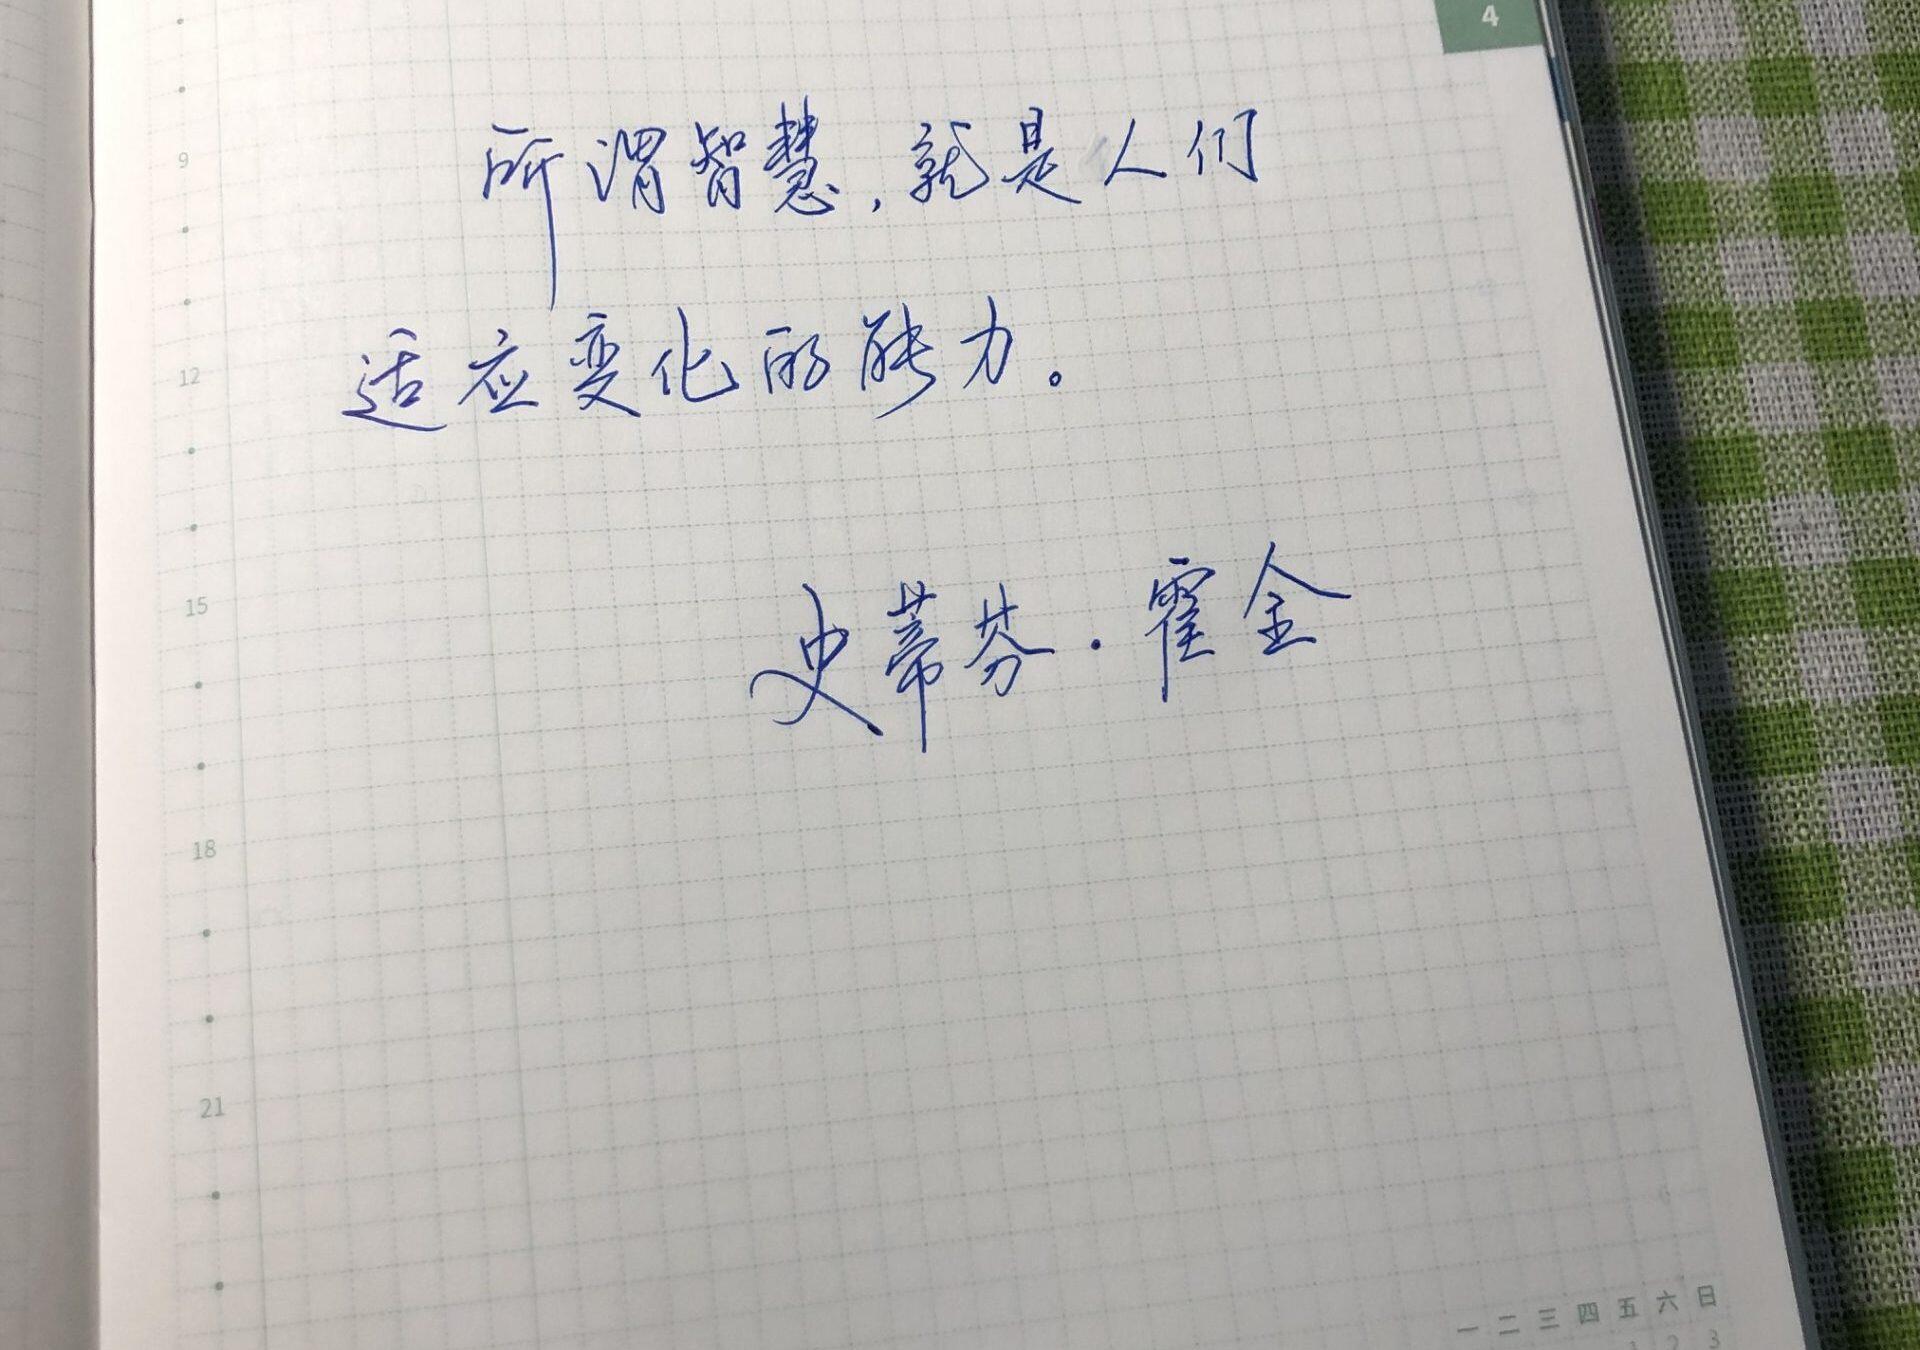 4
所谓智慧，就是人们
9
适应变化的能力。
12
史蒂芬·霍金
15
18
21
一 二 三 四 五 六 日
1 2 3